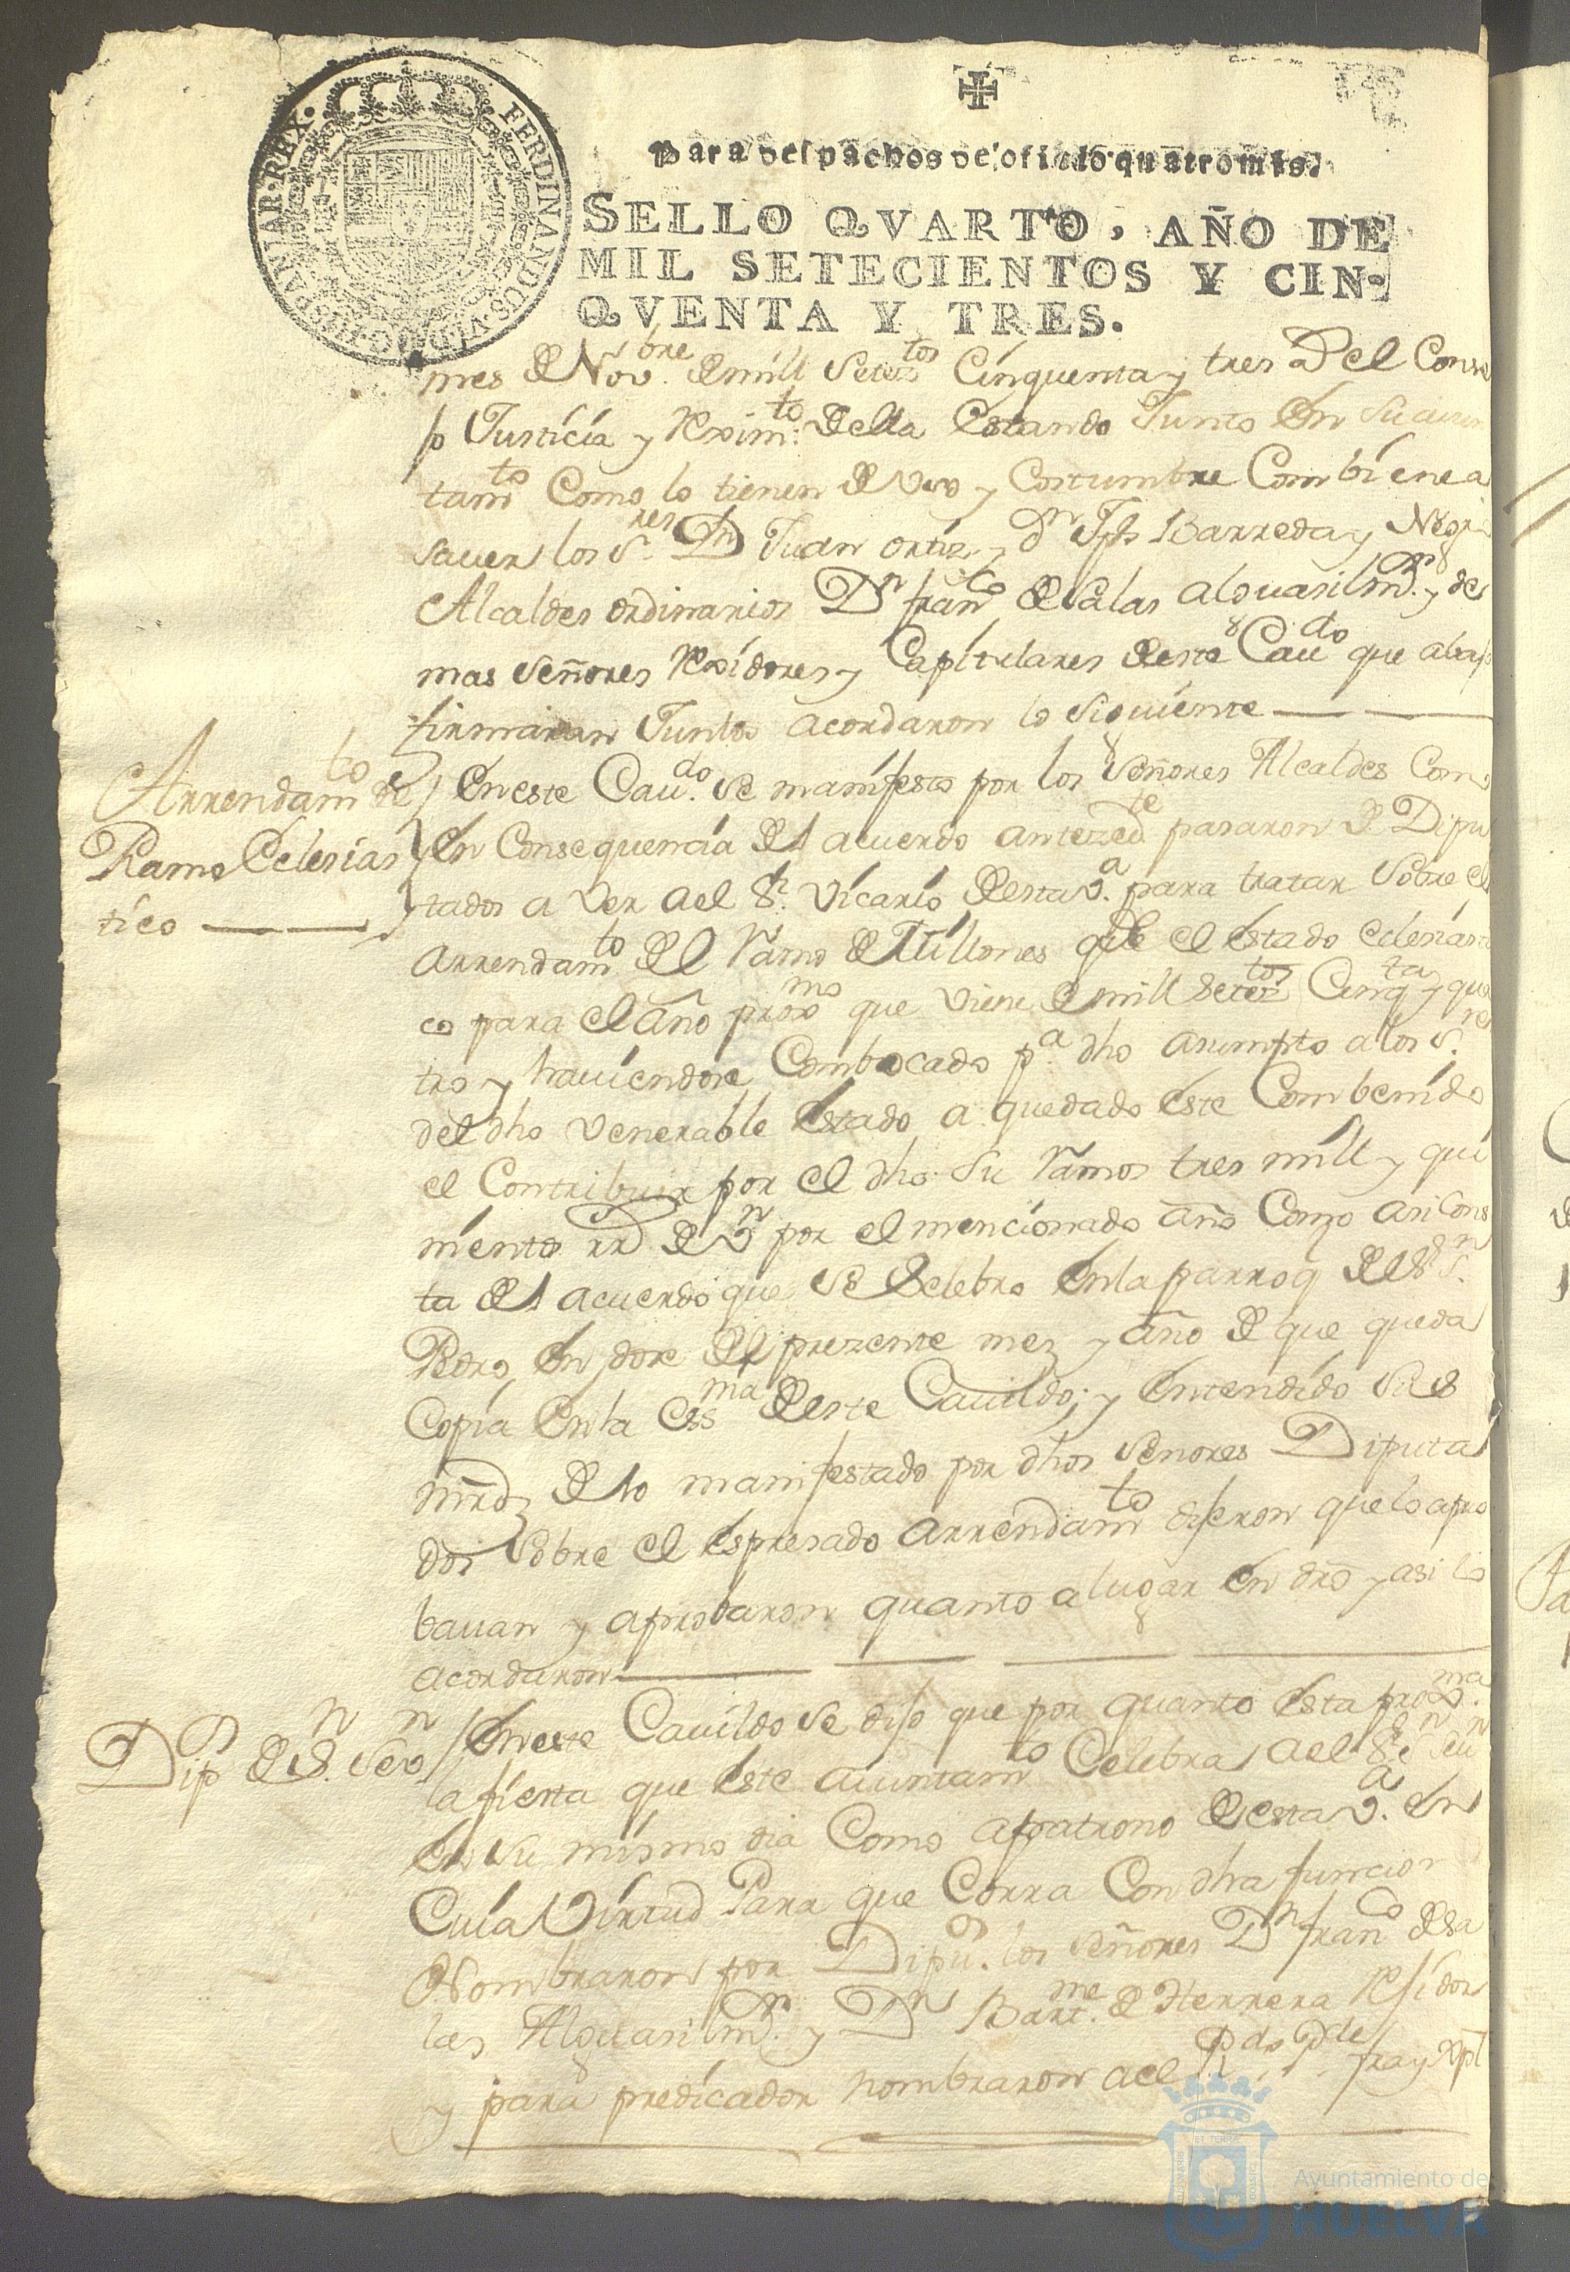 FERDINANDUS.VI.D.G.HISPANIAR.REX.
Para despachos de oficio quatro mrs.
SELLO QVARTO, AÑO DE
MIL SETECIENTOS Y CIN-
QVENTA Y TRES.
mes de Nov.bre de mill setez.tos Cinquenta y tres el Conse
jo Justicia y Rexim.to della estando Junto en su aiun
tam.to Como lo tienen de uso y Costumbre Combiene a
sauer los S.res Dn Juan Ortiz y dn Jph Barreda y Negr
Alcaldes ordinarios Dn fran.co de Salas alguasil m.r y de
mas señores Rexidores y Capitulares deste Cau.do que abajo
firmaran Juntos acordaron lo siguiente
Arrendam.to de
Ramo Eclesias
tico
en este Cau.do se manifesto por los señores Alcaldes Com
en Consequencia del acuerdo antezed.te pasaron de Dipu
tados a ver a el Sr. Vicario desta V.a para tratar sobre el
arrendam.to del Ramo de Millones que el estado eclesiasti
co para el año prox.mo que viene de mill setez.tos Cinq.ta y qua
tro y hauiendose Combocado p.a dho asumpto a los S.res
del dho venerable estado a quedado este Combenido
el Contribuir por el dho su Ramos tres mill y qui
nientos rr.s de v.n por el mencionado año Como asi Cons
ta del acuerdo que se selebro en la parroq del Sn S.n
Pedro en dose del prezente mez y año de que queda
Copia en la ess.ma deste Cauildo; y entendido sus
mrdz de lo manifestado por dhos señores Diputa
dos sobre el espresado arrendam.to dijeron que lo apro
bauan y aprobaron quanto a lugar en dro y asi lo
acordaron
Dip.on de S.n Seu.n
en este Cauildo se dijo que por quanto esta prox.ma
la fiesta que este aiuntam.to Celebra a el Sr Sn Seu.n
en su mismo dia Como a patrono desta V.a en
Cuia Virtud Para que Corra Con dha funcion
Nombraron por Dipu.os los señores Dn fran.co de Sa
las Alguasil m.r y Dn Bart.me de Herrera Rejidor
y para predicador nombraron a el R.do P.de fray Xpl
Ayuntamiento de
HUELVA